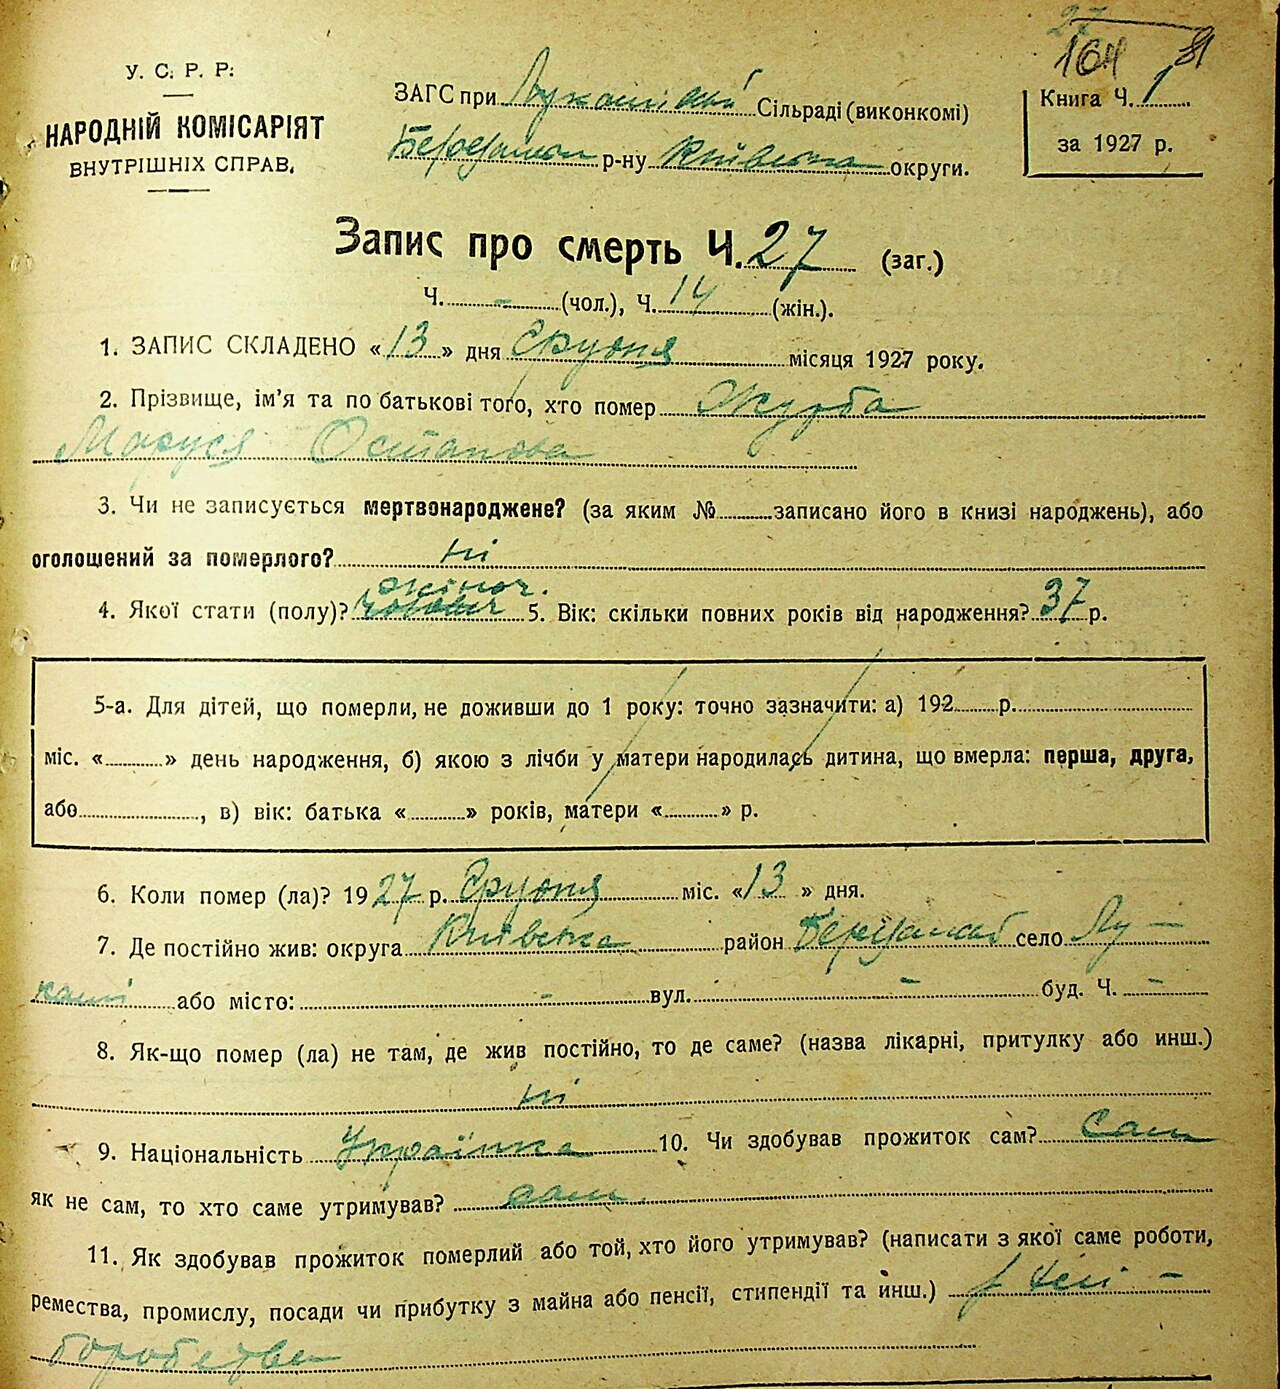 27
164
У. С. Р. Р.
НАРОДНІЙ КОМІСАРІЯТ
ВНУТРІШНІХ СПРАВ.
ЗАГС при Лукашівській Сільраді (виконкомі)
р-ну Київська округи.
Книга Ч. 1
за 1927 р.
Запис про смерть Ч. 27 (заг.)
Ч. - (чол.), Ч. 14 (жін.).
1. ЗАПИС СКЛАДЕНО «13» дня Грудня місяця 1927 року.
2. Прізвище, ім'я та по батькові того, хто помер Журба
Маруся Остапова
3. Чи не записується мертвонароджене? (за яким № записано його в книзі народжень), або
оголошений за померлого? ні
4. Якої стати (полу)? жіноч. 5. Вік: скільки повних років від народження? 37 р.
5-а. Для дітей, що померли, не доживши до 1 року: точно зазначити: а) 192 р.
міс. « » день народження, б) якою з лічби у матери народилась дитина, що вмерла: перша, друга,
або , в) вік: батька « » років, матери « » р.
6. Коли помер (ла)? 1927 р. Грудня міс. «13» дня.
7. Де постійно жив: округа Київська район село Лу-
каші або місто: - вул. - буд. Ч. -
8. Як-що помер (ла) не там, де жив постійно, то де саме? (назва лікарні, притулку або инш.)
ні
9. Національність Українка 10. Чи здобував прожиток сам? Сам
як не сам, то хто саме утримував? сам.
11. Як здобував прожиток померлий або той, хто його утримував? (написати з якої саме роботи,
ремества, промислу, посади чи прибутку з майна або пенсії, стипендії та инш.) хлі-
боробства